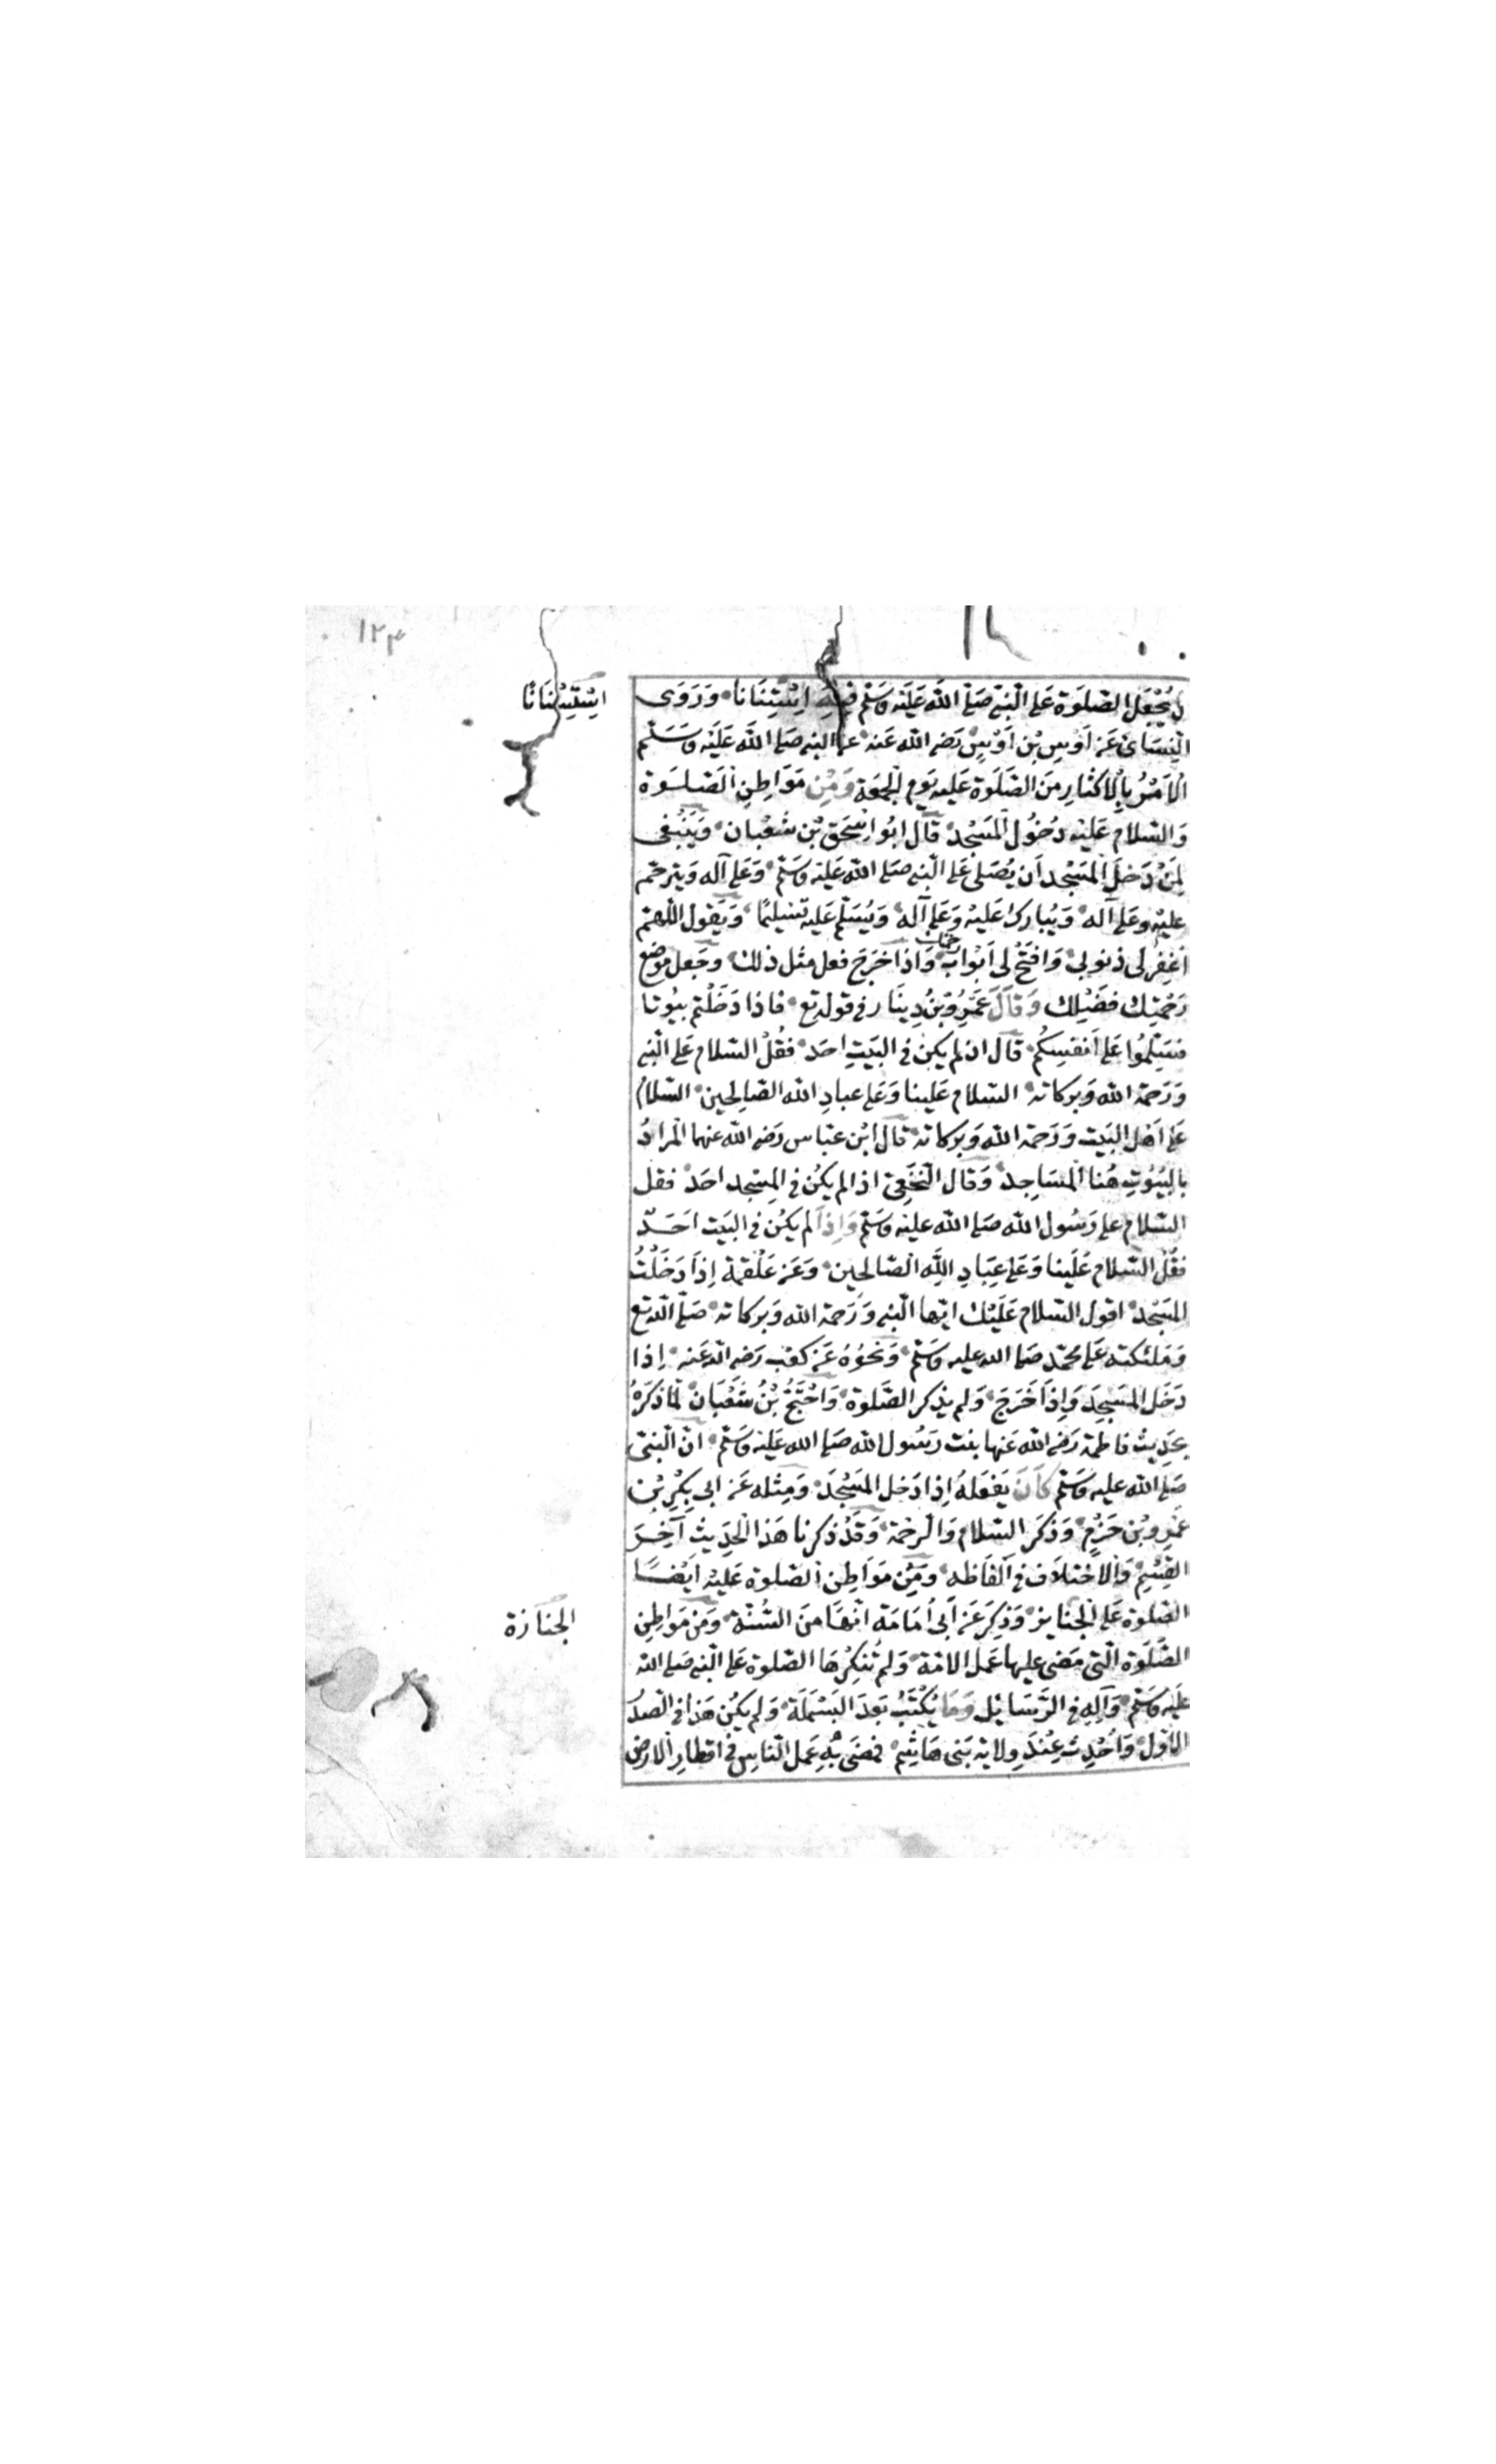 ١٢٣
اسْتِسْنَانًا
يُجْعَل الصّلَوة عَلى النّبى صَلى الله عَليْه وَسَلّم فيه اسْتِنَانًا وَرَوَى
النِسَائ عَن اَوْسِ بْنِ اَوْسٍ رَضى الله عَنه عن النبى صَلى الله عَلَيْه وَسَلَّم
الاَمْرُ بِالْاكْثَارِ مِنَ الصَّلَوة عَليه يَوم الجمَعة وَمِنْ مَوَاطِنِ الصَّلَوة
وَالسّلام عَلَيْه دُخُول المَسْجد قَالَ ابُو اسْحَق بْن شَعْبان وَيَنْبَغى
لِمَنْ دَخلَ المَسْجد اَن يُصَلى عَلى النّبى صَلى الله عَليْه وَسَلّم وَعَلى آله وَيترحّم
عليْه وعَلى آله وَيُبارك عَليْه وَعَلى آله وَيُسَلّم عَليه تسْلِيمًا وَيَقول اللّهمّ
اغفِرْ لى ذنوبى وَافتَحْ لى اَبْوَاب رحمتك وَاذا خَرَجَ فعل مثل ذلك وجَعل مَوضع
رَحْمتِك فضْلِك وَقَالَ عَمْرو بْنُ دِينَار فى قوله تع فاذا دَخَلْتم بيُوتا
فسَلِّمُوا عَلى اَنفسِكُم قَال ان لم يكن فى البَيتِ احَد فقُلْ السّلام عَلى النّبى
وَرَحمة الله وَبركاته السّلام عَلينا وَعَلى عبادِ الله الصّالِحين السّلام
عَلى اَهْل البَيت وَرَحمة الله وَبركاته قالَ ابْن عبّاس رَضى الله عنهما المرادُ
بالبيُوتِ هُنا المسَاجد وَقَال النّخَعِىّ اذا لم يكُن فى المسْجد احَد فقل
السّلام على رَسُول الله صَلى الله عليْه وَسَلّم وَاِذا لم يكُن فى البَيت اَحَدٌ
فقُل السّلام عَلَينا وَعَلى عِبَادِ اللّه الصّالحين وَعَن عَلْقمة اِذَا دَخَلْتُ
المَسْجد اقول السّلام عَلَيْك ايّها النّبى وَرَحمة الله وَبركاته صَلّى الله تع
وَمَلئكته عَلى محمّد صَلى الله عليه وَسَلّم وَنحْوُهُ عَن كعْب رَضى الله عَنه اِذا
دَخَل المَسْجِدَ وَاِذَا خَرَجَ وَلم يذكر الصَّلوة وَاحْتَجَّ بْنُ شَعْبَان لمَا ذكَرَهُ
بحَدِيث فاطمة رَضى الله عَنها بنت رَسُول الله صَلى الله عَليْه وَسَلّم انّ النّبىّ
صَلى الله عليه وَسَلّم كَانَ يَفعَلهُ اِذَا دَخل المَسْجدَ وَمِثله عَن ابى بكْر بْن
عَمْرو بْن حَزْمٍ وَذكَر السّلام وَالرحْمة وَقَدْ ذكرنا هَذَا الحدِيثْ آخِرَ
القِسْمِ وَالاخْتلاَف فى الفَاظه ومِنْ مَوَاطِن الصّلوة عَليْه اَيْضًا
الصّلوة عَلى الجنايز وَذكِرَ عَن اَبى اُمَامَة انّهَا مِنَ السُّنّة وَمن مَوَاطِن
الجنازة
الصَّلَوة الّتى مَضى عليها عَمل الامّة وَلم تُنْكِرْهَا الصّلوة عَلى النّبى صَلى الله
عليْه وَسَلّم وَآلِهِ فى الرَّسَائِل وَمَا يُكْتَبُ بَعدَ البَسْمَلَة وَلم يكُن هَذا فى الصّدْر
الاوّل وَاُحْدِث عِنْدَ وِلاية بَنى هَاشِم فمضى بِهِ عَمل النّاسِ فى اقطارِ الارض